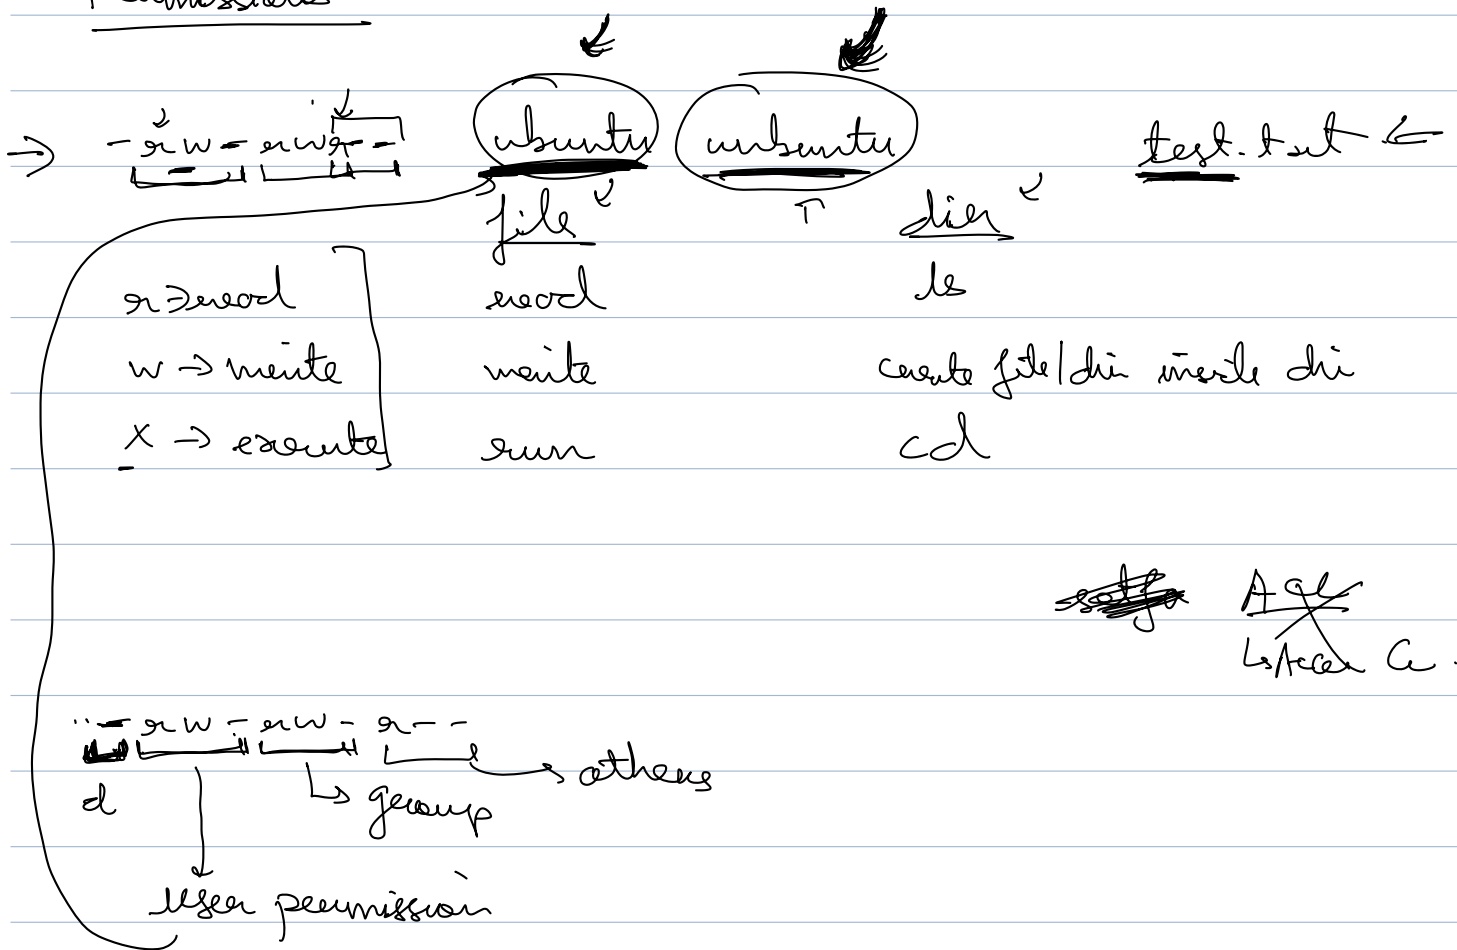 Permissions
-rw-rwr-- ubuntu unbuntu test.txt
file dir
r→read read ls
w → write write create file/dir inside dir
x → execute run cd
Acl
↳ Access
-rw-rw-r--
others
d group
User permission